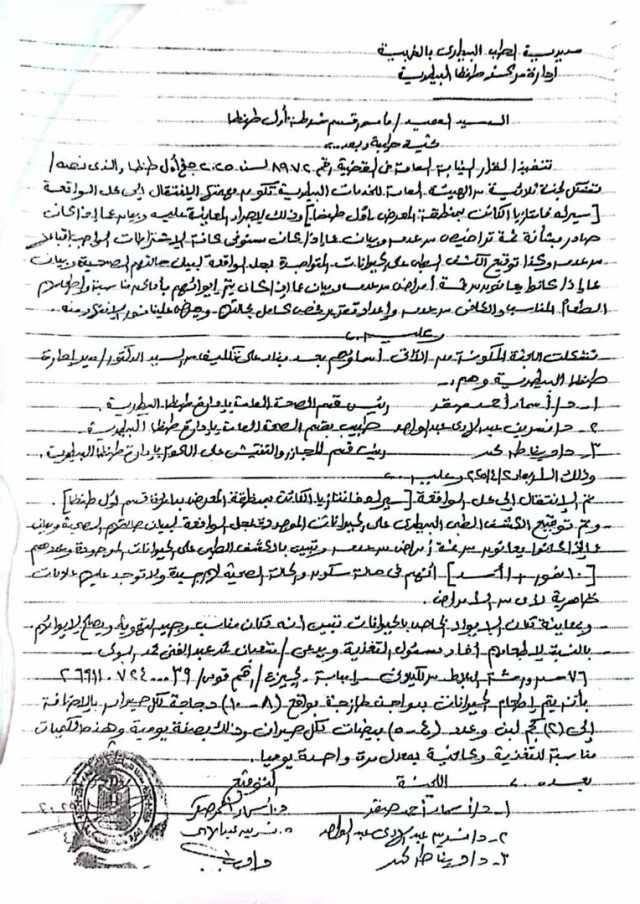 مديرية الطب البيطرى بالغربية
إدارة مركز طنطا البيطرية
السيد العميد / مأمور قسم شرطة أول طنطا
تحية طيبة وبعد ...
تنفيذاً لقرار النيابة العامة فى القضية رقم ٨٩٧٢ لسنة ٢٠٢٥ جنح أول طنطا والذى نصه /
تشكل لجنة ثلاثية من الهيئة العامة للخدمات البيطرية تكون مهمتها الإنتقال إلى محل الواقعة
[سيرك فانتازيا الكائن بمنطقة المعرض أول طنطا] وذلك لإجراء المعاينة عليه وبيان عما إذا كان
صادر بشأنه ثمة تراخيص من عدمه وبيان عما إذا كان مستوفى كافة الإشتراطات الواجب اتباعها
من عدمه وكذا توقيع الكشف الطبى على الحيوانات المتواجدة بمحل الواقعة لبيان حالتهم الصحية وبيان
عما إذا كانوا يعانون من ثمة أمراض من عدمه وبيان عما إذا كان يتم إيوائهم بأماكن مناسبة وإطعامهم
الطعام المناسب والكافى من عدمه وإعداد تقرير مفصل كامل بحالتهم ويعرض علينا فور الإنتهاء منه.
وعليه ..
تشكلت اللجنة المكونة من الآتى أسماؤهم بعد بناء على تكليف من السيد الدكتور / مدير إدارة
طنطا البيطرية وهم :-
١- د/ أسماء أحمد صقر رئيس قسم الصحة العامة بإدارة طنطا البيطرية.
٢- د/ نسرين عبد الهادى عبد الواحد طبيب بقسم الصحة العامة بإدارة طنطا البيطرية.
٣- د/ رئيس قسم المجازر والتفتيش على اللحوم بإدارة طنطا البيطرية.
وذلك ٢٠٢٥/٤/٢ وعليه ..
تم الإنتقال إلى محل الواقعة [سيرك فانتازيا الكائن بمنطقة المعرض بدائرة قسم أول طنطا].
وتم توقيع الكشف الطبى البيطرى على الحيوانات الموجودة بمحل الواقعة لبيان حالتهم الصحية وبيان
عما إذا كانوا يعانون من ثمة أمراض من عدمه وتبين بالكشف الطبى على الحيوانات الموجودة وعددهم
[١٠ نمور، أسد] أنهم فى حالة سكون والحالة الصحية لهم جيدة ولا توجد عليهم علامات
ظاهرية لأى من الأمراض.
وبمعاينة مكان الإيواء الخاص بالحيوانات تبين أنه مكان مناسب وجيد التهوية ويصلح لإيوائهم.
بالنسبة لإطعامهم أفاد مسئول التغذية ويدعى / شعبان محمد عبد الغنى محمد
٧٦ إمبابة - الجيزة / رقم قومى / ٢٦٩١١٠٧٢٤٠٠٠٣٩
بأن يتم إطعام الحيوانات بدواجن طازجة بواقع (٨-١٠) دجاجة لكل حيوان بالإضافة
إلى (٢) كجم لبن وعدد (٤-٥) بيضات لكل حيوان وذلك بصفة يومية وهذه الكميات
مناسبة للتغذية وكافية بمعدل مرة واحدة يومياً.
اللجنة التوقيع
١- د/ أسماء أحمد صقر
٢- د/ نسرين عبد الهادى عبد الواحد
٣- د/